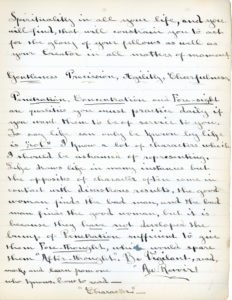 Spirituality in all your life, and you
will find, that will constrain you to act
for the glory of your fellows as well as
your Creator in all matters of moment.
Gentleness Precision, Agility, Cheerfulness,
Penetration, Concentration and Fore-sight
are qualities you must practice daily if
you want them to be of service to you.
To say life can only be known by life,
is "rot." I know a lot of characters which
I should be ashamed of representing.
Like draws like in many instances but
the opposite of character often come in
contact with disastrous results, the good
woman finds the bad man, and the bad
man finds the good woman, but it is
because they have not developed the
bump of Penetration sufficient to give
them Fore-thought, which would spare
them "After-thought". Be Vigilant, and,
watch, and learn from one
who knows how to read -
"Character" -